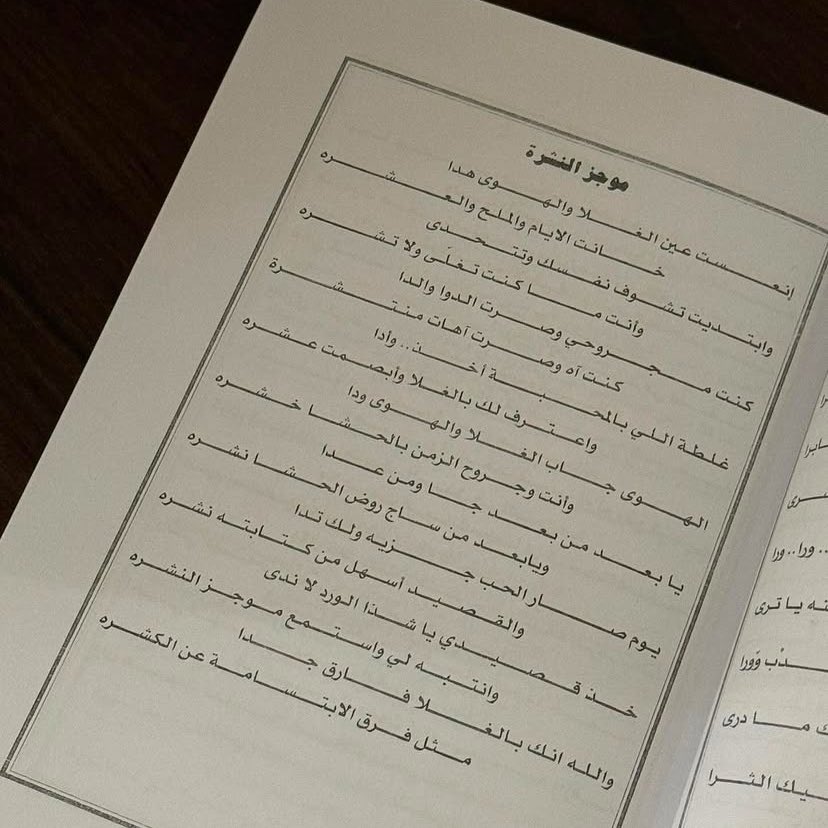 موجز النشرة
إنعست عين الغلا والهوى هدا
خانت الايام والملح والعشره
وابتديت تشوف نفسك وتتحدى
وأنت ما كنت تغلّى ولا تشره
كنت مجروحي وصرت الدوا والدا
كنت آه وصرت آهات منتشرة
غلطة اللي بالمحبة أخذ.. وأدا
واعترف لك بالغلا وأبصمت عشره
الهوى جاب الغلا والهوى ودا
وأنت وجروح الزمن بالحشا خشره
يا بعد من بعد جا ومن عدا
ويابعد من ساج روض الحشا نشره
يوم صار الحب جزيه ولك تدا
والقصيد أسهل من كتابته نشره
خذ قصيدي يا شذا الورد لا ندى
وانتبه لي واستمع موجز النشره
والله انك بالغلا فارق جدا
مثل فرق الابتسامة عن الكشره
.. ورا.. ورا
ته يا ترى
ك ما درى
يك الثرا